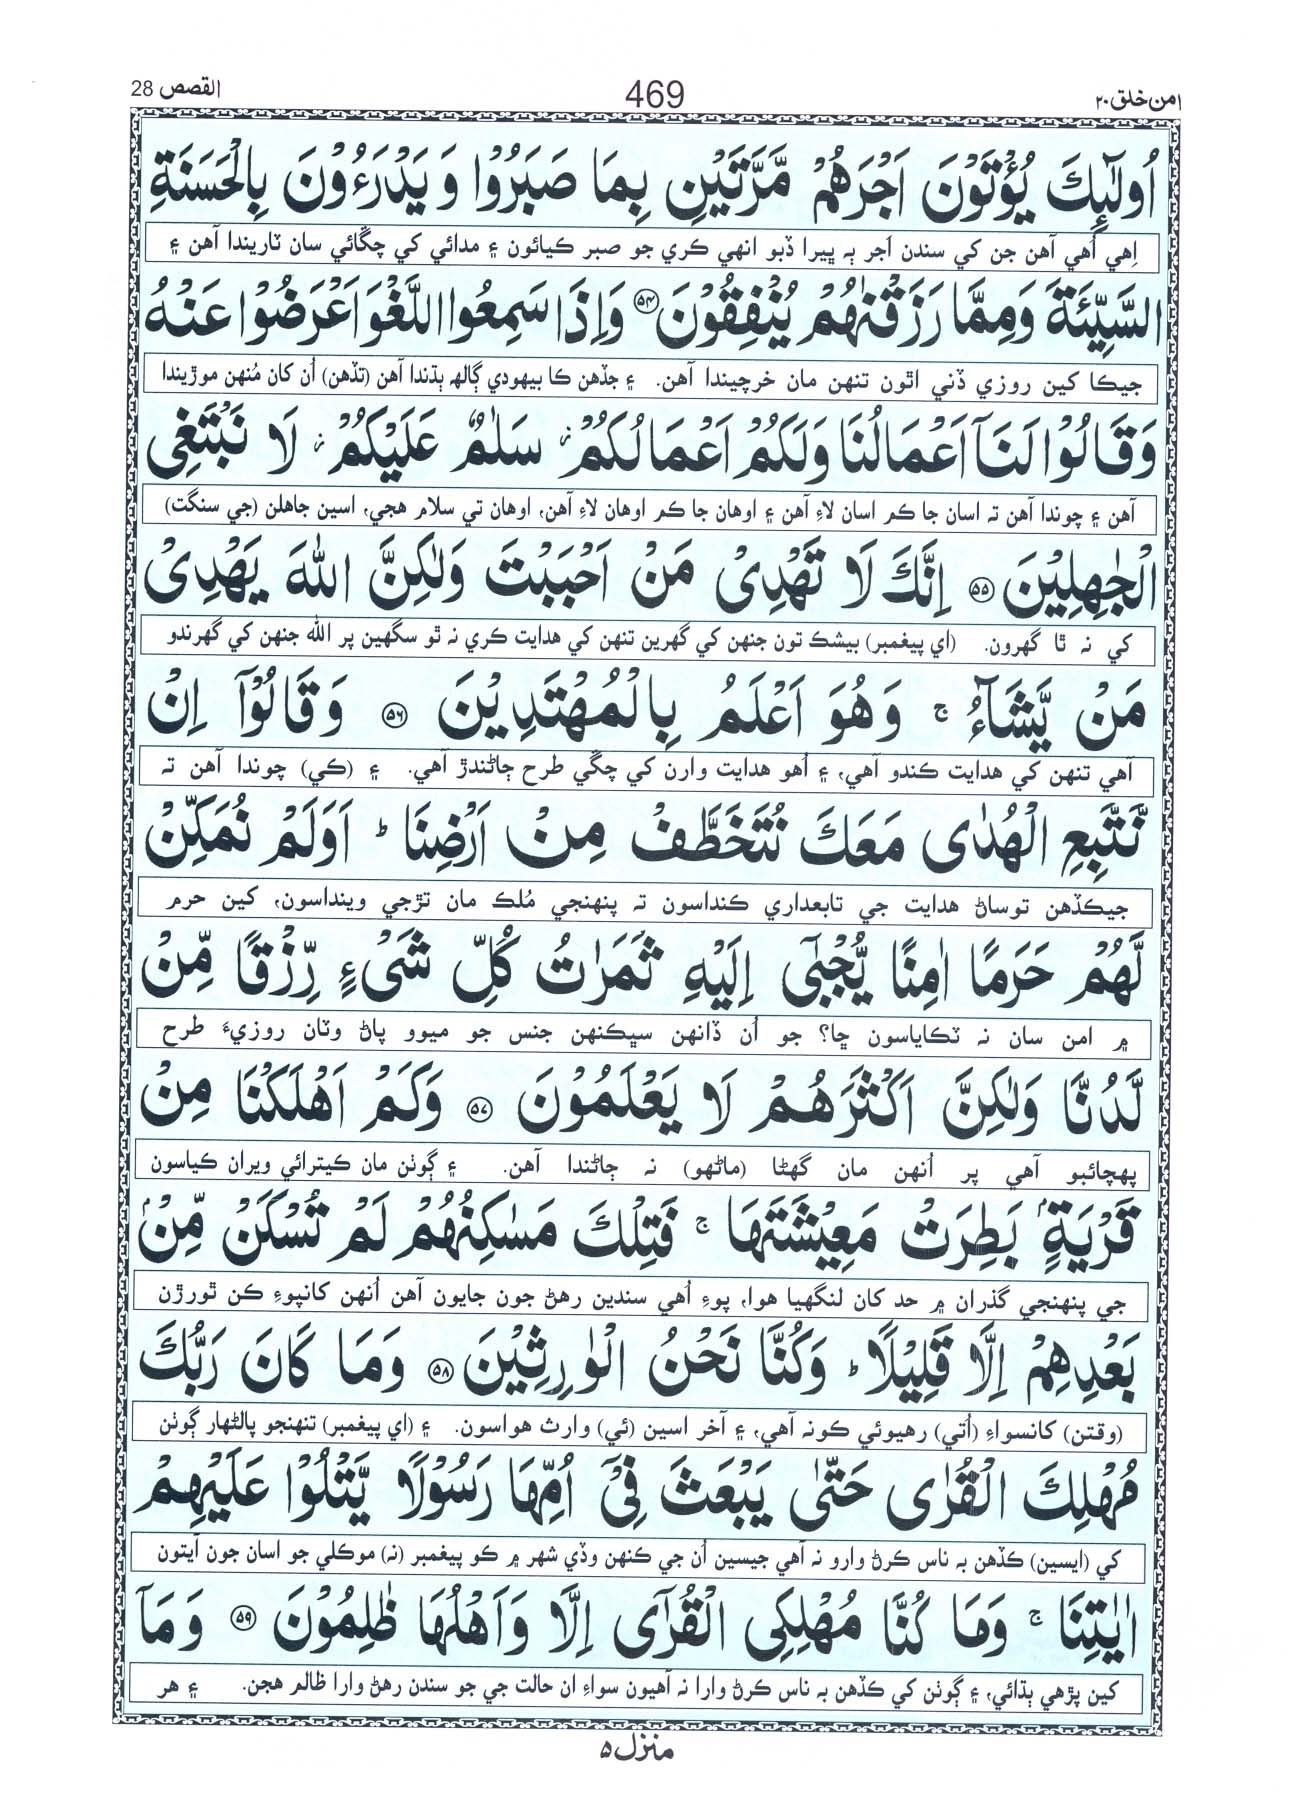 امن خلق ۲۰
469
القصص 28
اُولٰٓئِكَ يُؤْتَوْنَ اَجْرَهُمْ مَّرَّتَيْنِ بِمَا صَبَرُوْا وَيَدْرَءُوْنَ بِالْحَسَنَةِ
اِهي اُهي آهن جن کي سندن اَجر ٻہ ڀيرا ڏبو انهي ڪري جو صبر ڪيائون ۽ مدائي کي چڱائي سان ٽاريندا آهن ۽
السَّيِّئَةَ وَمِمَّا رَزَقْنٰهُمْ يُنْفِقُوْنَ ۝۵۴ وَاِذَا سَمِعُوا اللَّغْوَ اَعْرَضُوْا عَنْهُ
جيڪا کين روزي ڏني اٿون تنهن مان خرچيندا آهن. ۽ جڏهن ڪا بيهودي ڳالھہ ٻڌندا آهن (تڏهن) اُن کان مُنهن موڙيندا
وَقَالُوْا لَنَآ اَعْمَالُنَا وَلَكُمْ اَعْمَالُكُمْ ز سَلٰمٌ عَلَيْكُمْ ز لَا نَبْتَغِى
آهن ۽ چوندا آهن تہ اسان جا ڪم اسان لاءِ آهن ۽ اوهان جا ڪم اوهان لاءِ آهن، اوهان تي سلام هجي، اسين جاهلن (جي سنگت)
الْجٰهِلِيْنَ ۝۵۵ اِنَّكَ لَا تَهْدِىْ مَنْ اَحْبَبْتَ وَلٰكِنَّ اللّٰهَ يَهْدِىْ
کي نہ ٿا گهرون. (اي پيغمبر) بيشڪ تون جنهن کي گهرين تنهن کي هدايت ڪري نہ ٿو سگهين پر الله جنهن کي گهرندو
مَنْ يَّشَآءُ ج وَهُوَ اَعْلَمُ بِالْمُهْتَدِيْنَ ۝۵۶ وَقَالُوْٓا اِنْ
آهي تنهن کي هدايت ڪندو آهي، ۽ اُهو هدايت وارن کي چڱي طرح ڄاڻندڙ آهي. ۽ (ڪي) چوندا آهن تہ
نَّتَّبِعِ الْهُدٰى مَعَكَ نُتَخَطَّفْ مِنْ اَرْضِنَا ط اَوَلَمْ نُمَكِّنْ
جيڪڏهن توساڻ هدايت جي تابعداري ڪنداسون تہ پنهنجي مُلڪ مان تڙجي وينداسون، کين حرم
لَّهُمْ حَرَمًا اٰمِنًا يُّجْبٰٓى اِلَيْهِ ثَمَرٰتُ كُلِّ شَىْءٍ رِّزْقًا مِّنْ
۾ امن سان نہ ٽڪاياسون ڇا؟ جو اُن ڏانهن سڀڪنهن جنس جو ميوو پاڻ وٽان روزيءَ طرح
لَّدُنَّا وَلٰكِنَّ اَكْثَرَهُمْ لَا يَعْلَمُوْنَ ۝۵۷ وَكَمْ اَهْلَكْنَا مِنْ
پهچائبو آهي پر اُنهن مان گهڻا (ماڻهو) نہ ڄاڻندا آهن. ۽ ڳوٺن مان ڪيترائي ويران ڪياسون
قَرْيَةٍۭ بَطِرَتْ مَعِيْشَتَهَا ج فَتِلْكَ مَسٰكِنُهُمْ لَمْ تُسْكَنْ مِّنْۢ
جي پنهنجي گذران ۾ حد کان لنگهيا هوا، پوءِ اُهي سندين رهڻ جون جايون آهن اُنهن کانپوءِ ڪن ٿورڙن
بَعْدِهِمْ اِلَّا قَلِيْلًا ط وَكُنَّا نَحْنُ الْوٰرِثِيْنَ ۝۵۸ وَمَا كَانَ رَبُّكَ
(وقتن) کانسواءِ (اُتي) رهيوئي ڪونہ آهي، ۽ آخر اسين (ئي) وارث هواسون. ۽ (اي پيغمبر) تنهنجو پالڻهار ڳوٺن
مُهْلِكَ الْقُرٰى حَتّٰى يَبْعَثَ فِىْٓ اُمِّهَا رَسُوْلًا يَّتْلُوْا عَلَيْهِمْ
کي (ايسين) ڪڏهن بہ ناس ڪرڻ وارو نہ آهي جيسين اُن جي ڪنهن وڏي شهر ۾ ڪو پيغمبر (نہ) موڪلي جو اسان جون آيتون
اٰيٰتِنَا ج وَمَا كُنَّا مُهْلِكِى الْقُرٰٓى اِلَّا وَاَهْلُهَا ظٰلِمُوْنَ ۝۵۹ وَمَآ
کين پڙهي ٻڌائي، ۽ ڳوٺن کي ڪڏهن بہ ناس ڪرڻ وارا نہ آهيون سواءِ ان حالت جي جو سندن رهڻ وارا ظالم هجن. ۽ هر
منزل ۵